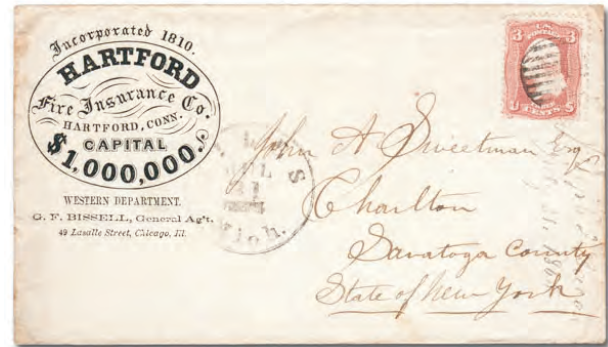 Incorporated 1810.
HARTFORD
Fire Insurance Co.
HARTFORD, CONN.
CAPITAL
$1,000,000.
WESTERN DEPARTMENT.
G. F. BISSELL, General Ag't.
49 Lasalle Street, Chicago, Ill.
3 3
U S
CENTS
Mich.
John A Sweetman Esq
Charlton
Saratoga County
State of New York